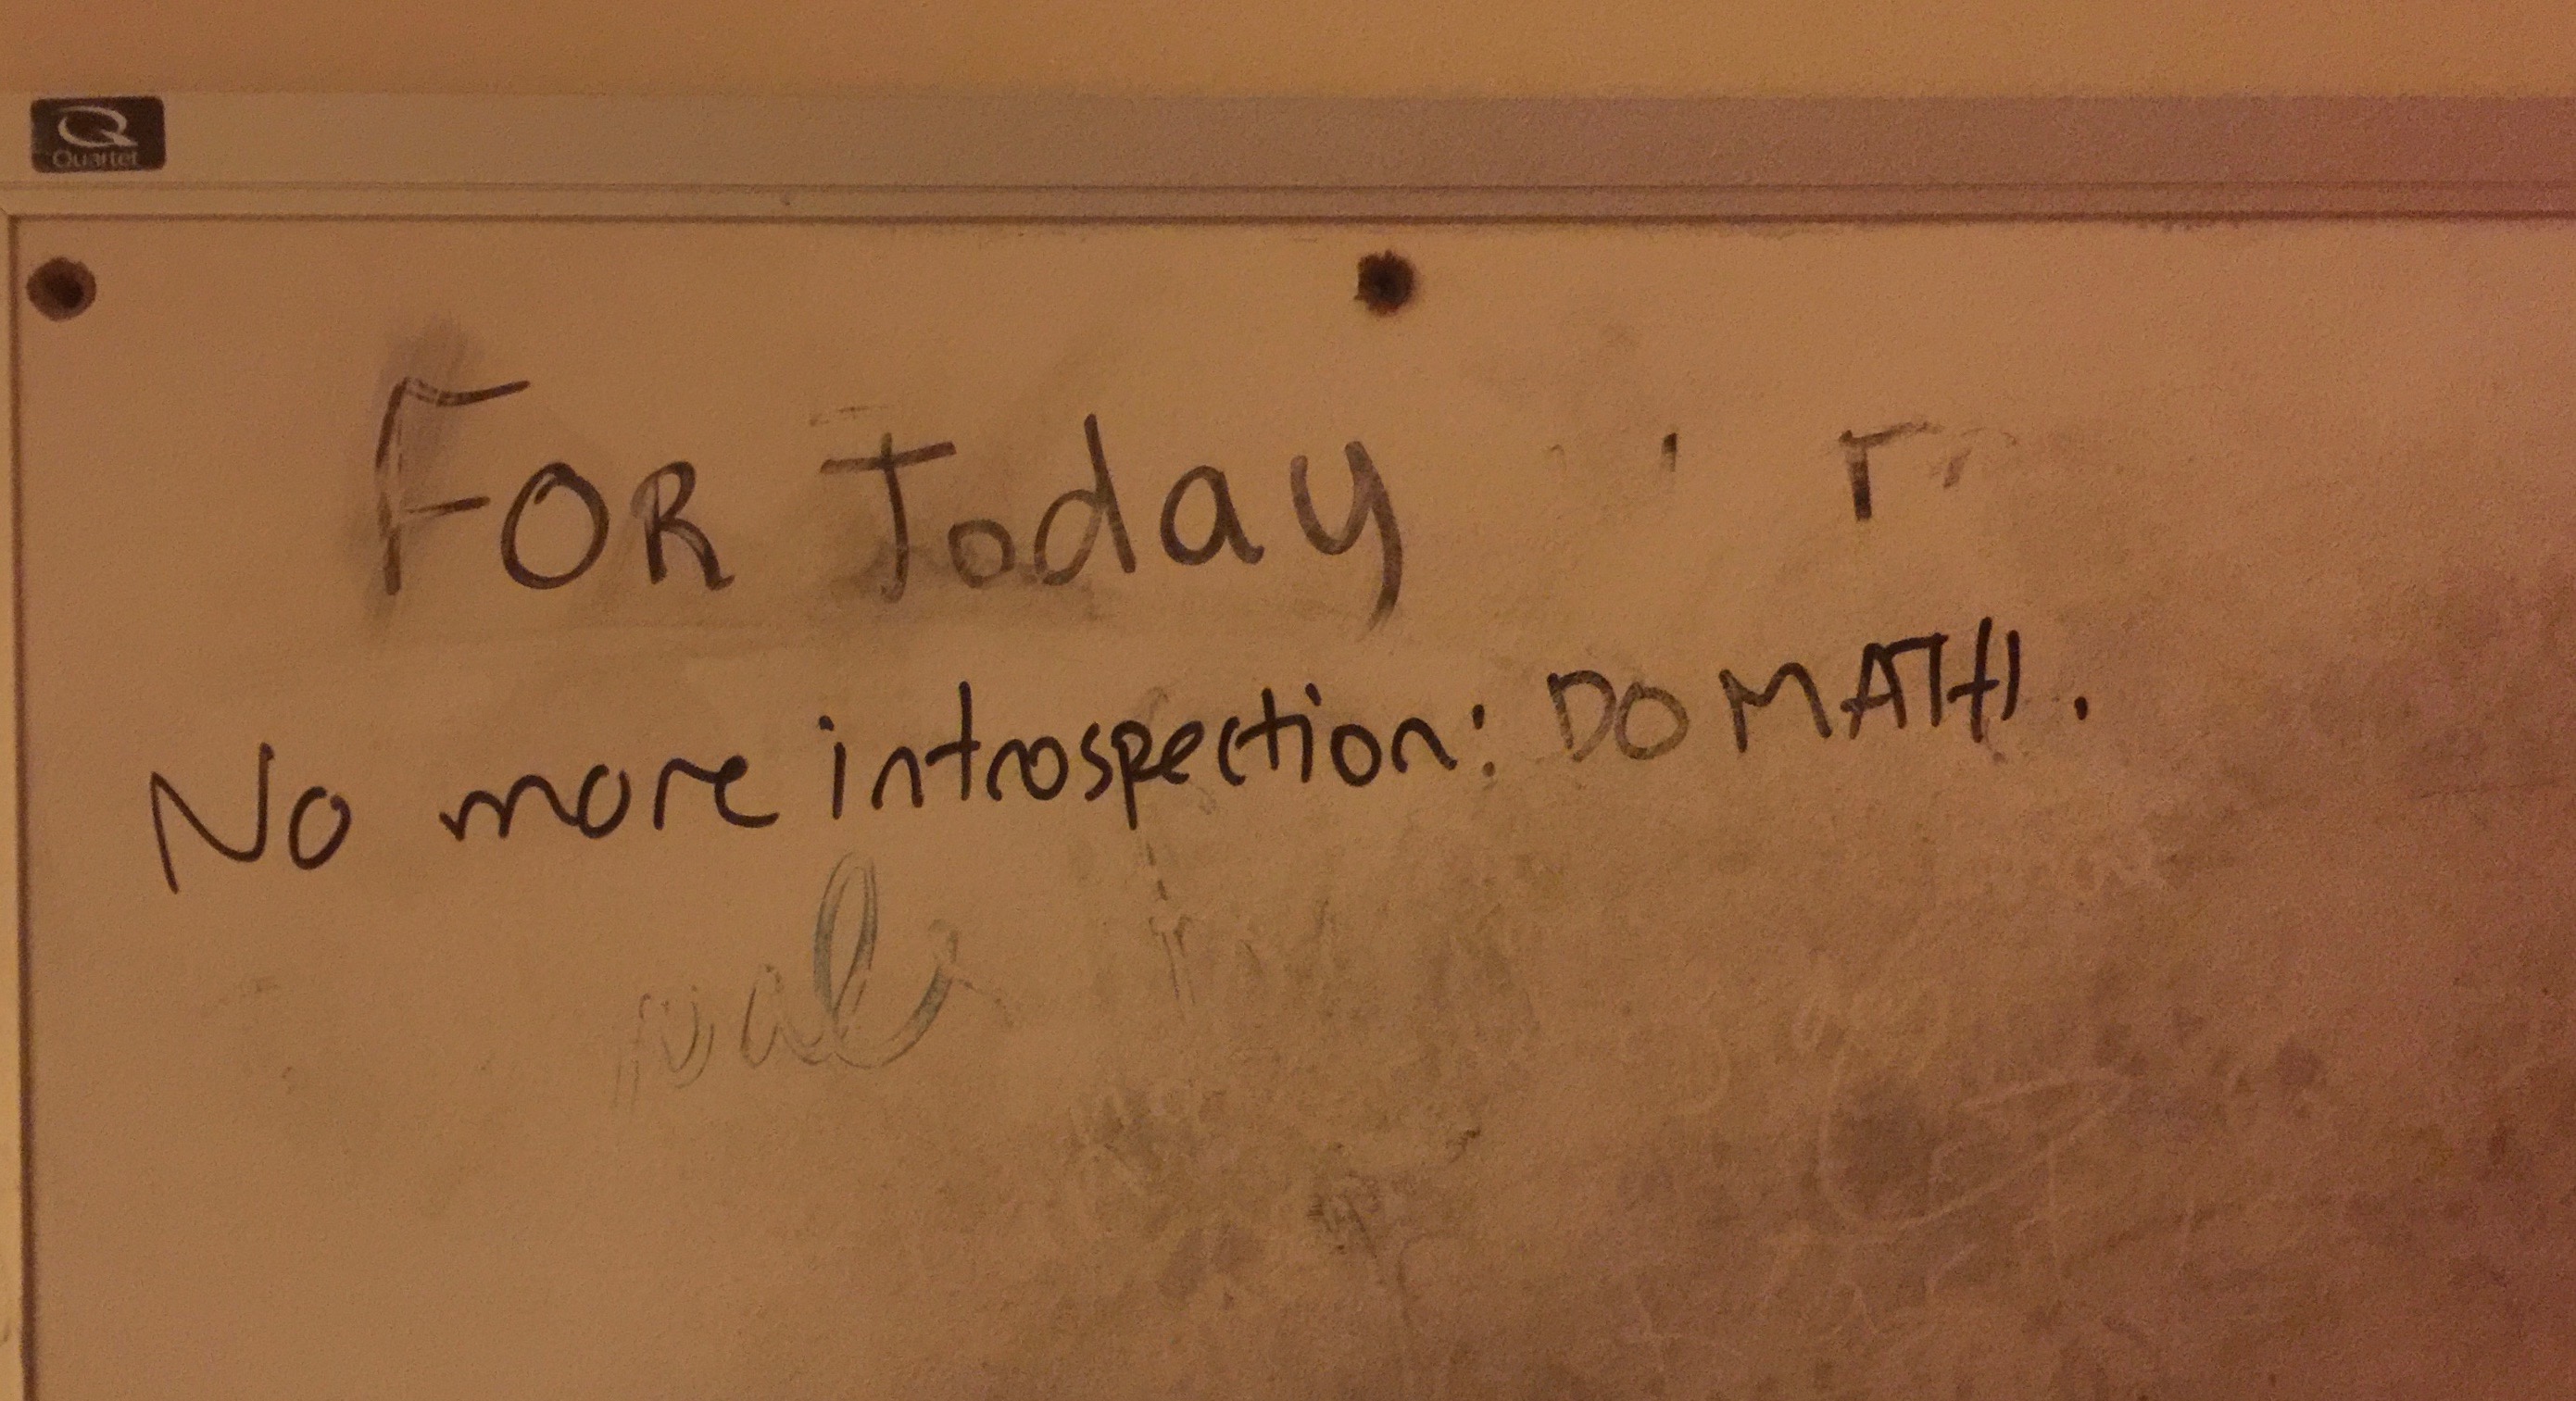 Quartet
FOR Today
No more introspection: DO MATH.